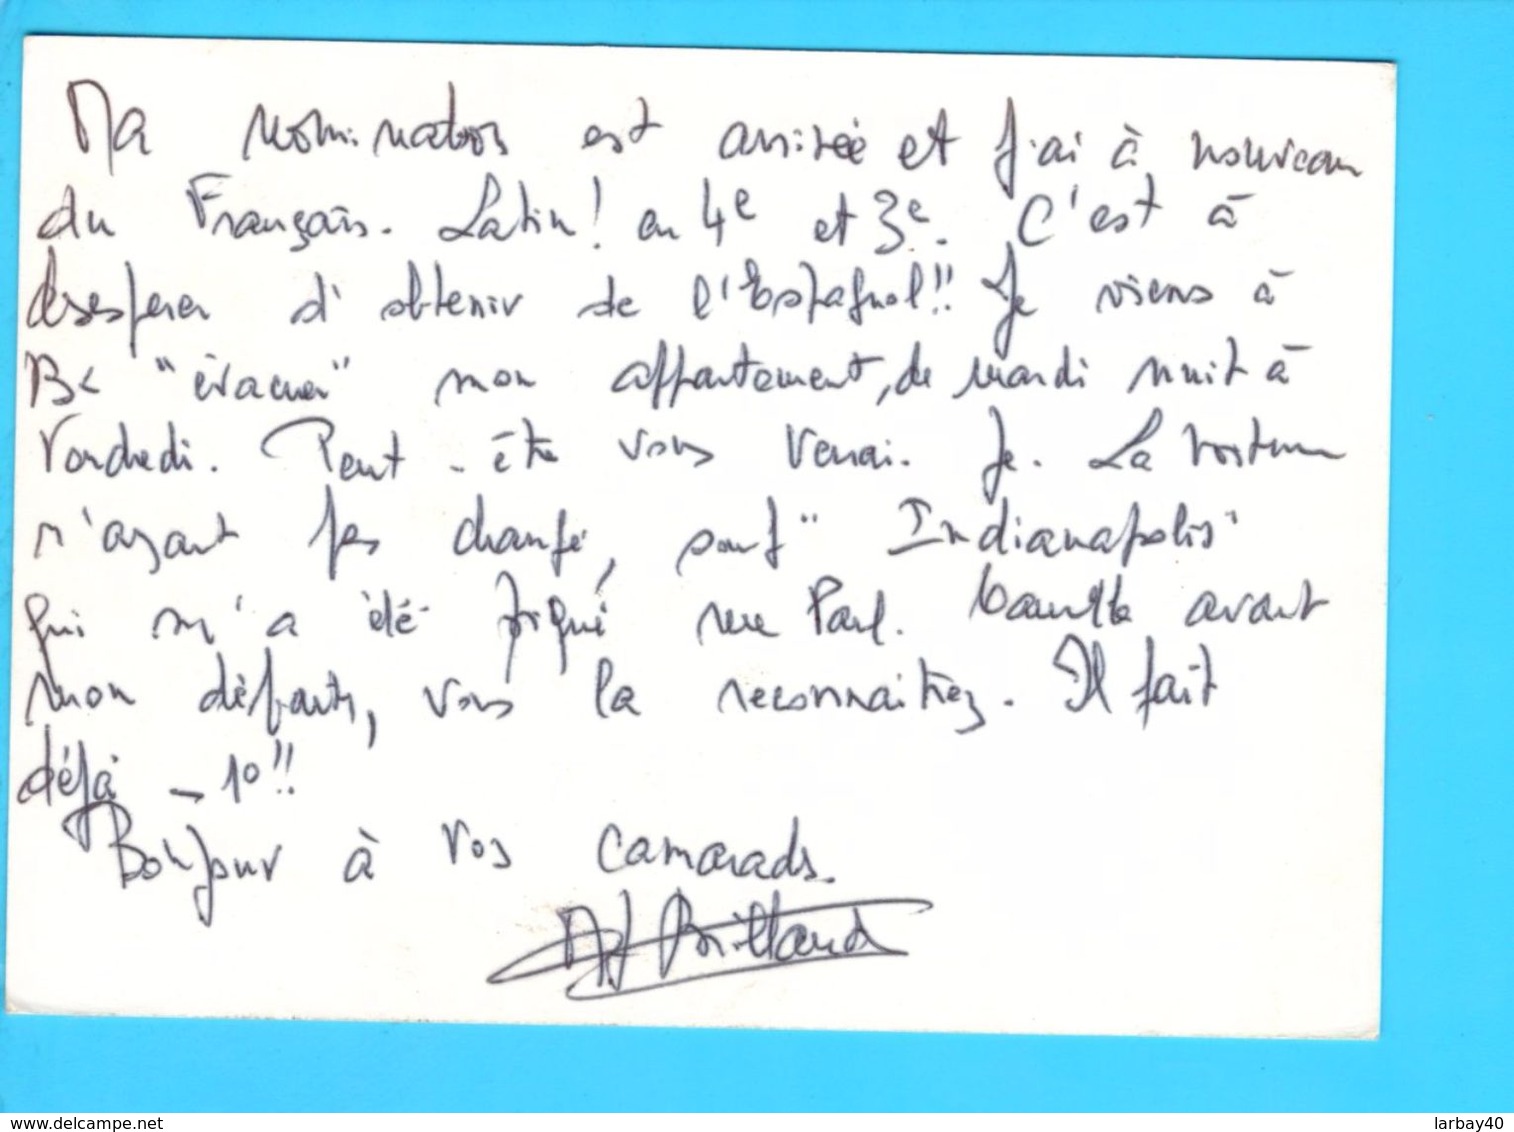 Ma nomination est arrivée et j'ai à nouveau
du Français. Latin! en 4e et 3e. C'est à
desesperer d'obtenir de l'Espagnol!! Je viens à
"évacuer" mon appartement, de mardi nuit à
Vendredi. Peut-être vous verrai-je. La voiture
n'ayant pas changé, sauf "Indianapolis"
qui m'a été piqué rue Paul. avant
mon départ, vous la reconnaitrez. Il fait
déjà -1°!!
Bonjour à vos camarads.
www.delcampe.net
larbay40